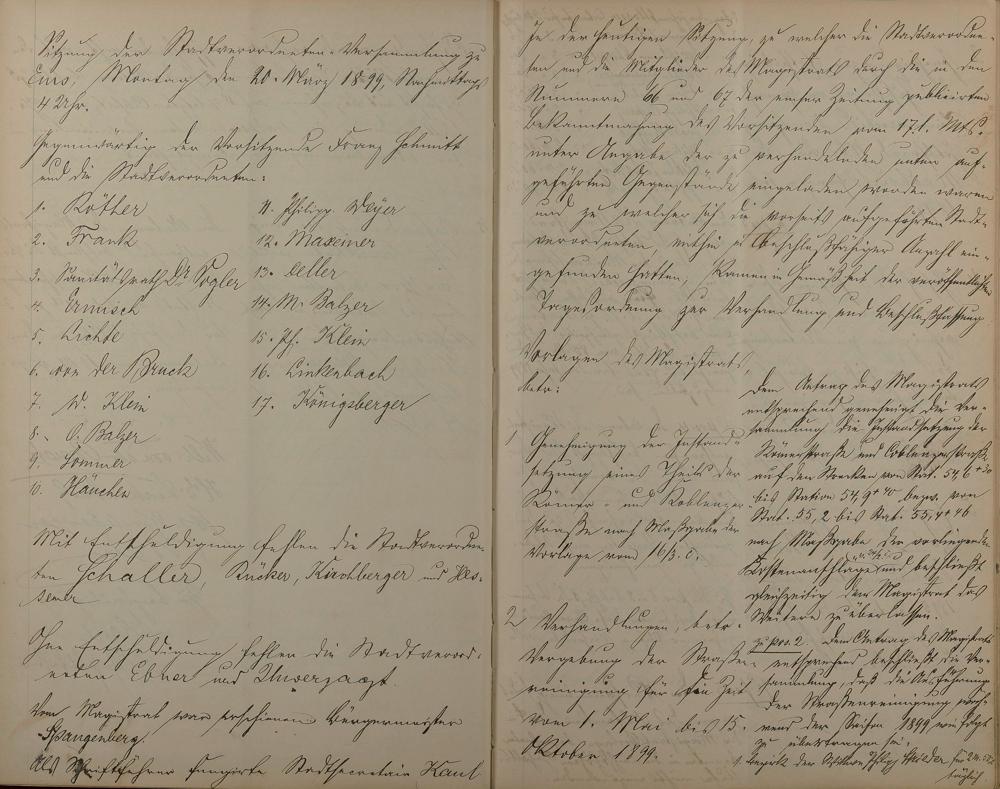 Sitzung der Stadtverordneten-Versammlung zu
Ems, Montag den 20. März 1899, Nachmittags
4 Uhr.
Gegenwärtig der Vorsitzende Franz Schmitt
und die Stadtverordneten:
1. Röther
2. Frank
3. Sanitätsrath Dr. Vogler
4. Ermisch
5. Lichte
6. von der Bruck
7. W. Klein
8. O. Balzer
9. Sommer
10. Häuchen
11. Philipp Weyer
12. Maxeiner
13. Oeller
14. M. Balzer
15. Ph. Klein
16. Linkenbach
17. Königsberger
Mit Entschuldigung fehlen die Stadtverordne-
ten Schaller, Rücker, Kirchberger und
Ohne Entschuldigung fehlen die Stadtverord-
neten Ebner und Unverzagt.
Vom Magistrat war erschienen Bürgermeister
Spangenberg.
Als Schriftführer fungirte Stadtsecretair Kaul
In der heutigen Sitzung, zu welcher die Stadtverordne-
ten und die Mitglieder des Magistrats durch die in den
Nummern 66 und 67 der Emser Zeitung publicirten
Bekanntmachung des Vorsitzenden vom 17. l. Mts.
unter Angabe der zu verhandelnden unten auf-
geführten Gegenstände eingeladen worden waren
und zu welcher sich die vorseits aufgeführten Stadt-
verordneten, mithin in beschlußfähiger Anzahl ein-
gefunden hatten, kamen in Gemäßheit der veröffentlichten
Tagesordnung zur Verhandlung und Beschlußfassung
Vorlagen des Magistrats,
betr:
1 Genehmigung der Instand-
setzung eines Theils der
Römer- und Koblenzer-
straße nach Maßgabe der
Vorlage vom 16/3. c.
Dem Antrag des Magistrats
entsprechend genehmigt die Ver-
sammlung die Instandsetzung der
Römerstraße und Coblenzerstraße
auf den Strecken von Stat. 54,6 + 20
bis Station 54,9 + 40 bezw. von
Stat. 55,2 bis Stat. 55,4 + 46
nach Maßgabe der vorliegenden
Kostenanschläge und beschließt
gleichzeitig dem Magistrat das
Weitere zu überlassen.
2 Verhandlungen, betr.
Vergebung der Straßen-
reinigung für die Zeit
vom 1. Mai bis 15.
Oktober 1899.
zu pos. 2. Dem Antrag des Magistrats
entsprechend beschließt die Ver-
sammlung, daß die Ausführung
der Straßenreinigung wäh-
rend der Saison 1899, wie folgt
zu übertragen sei:
1. Bezirk der Wittwe Philipp für 2 M.
täglich.